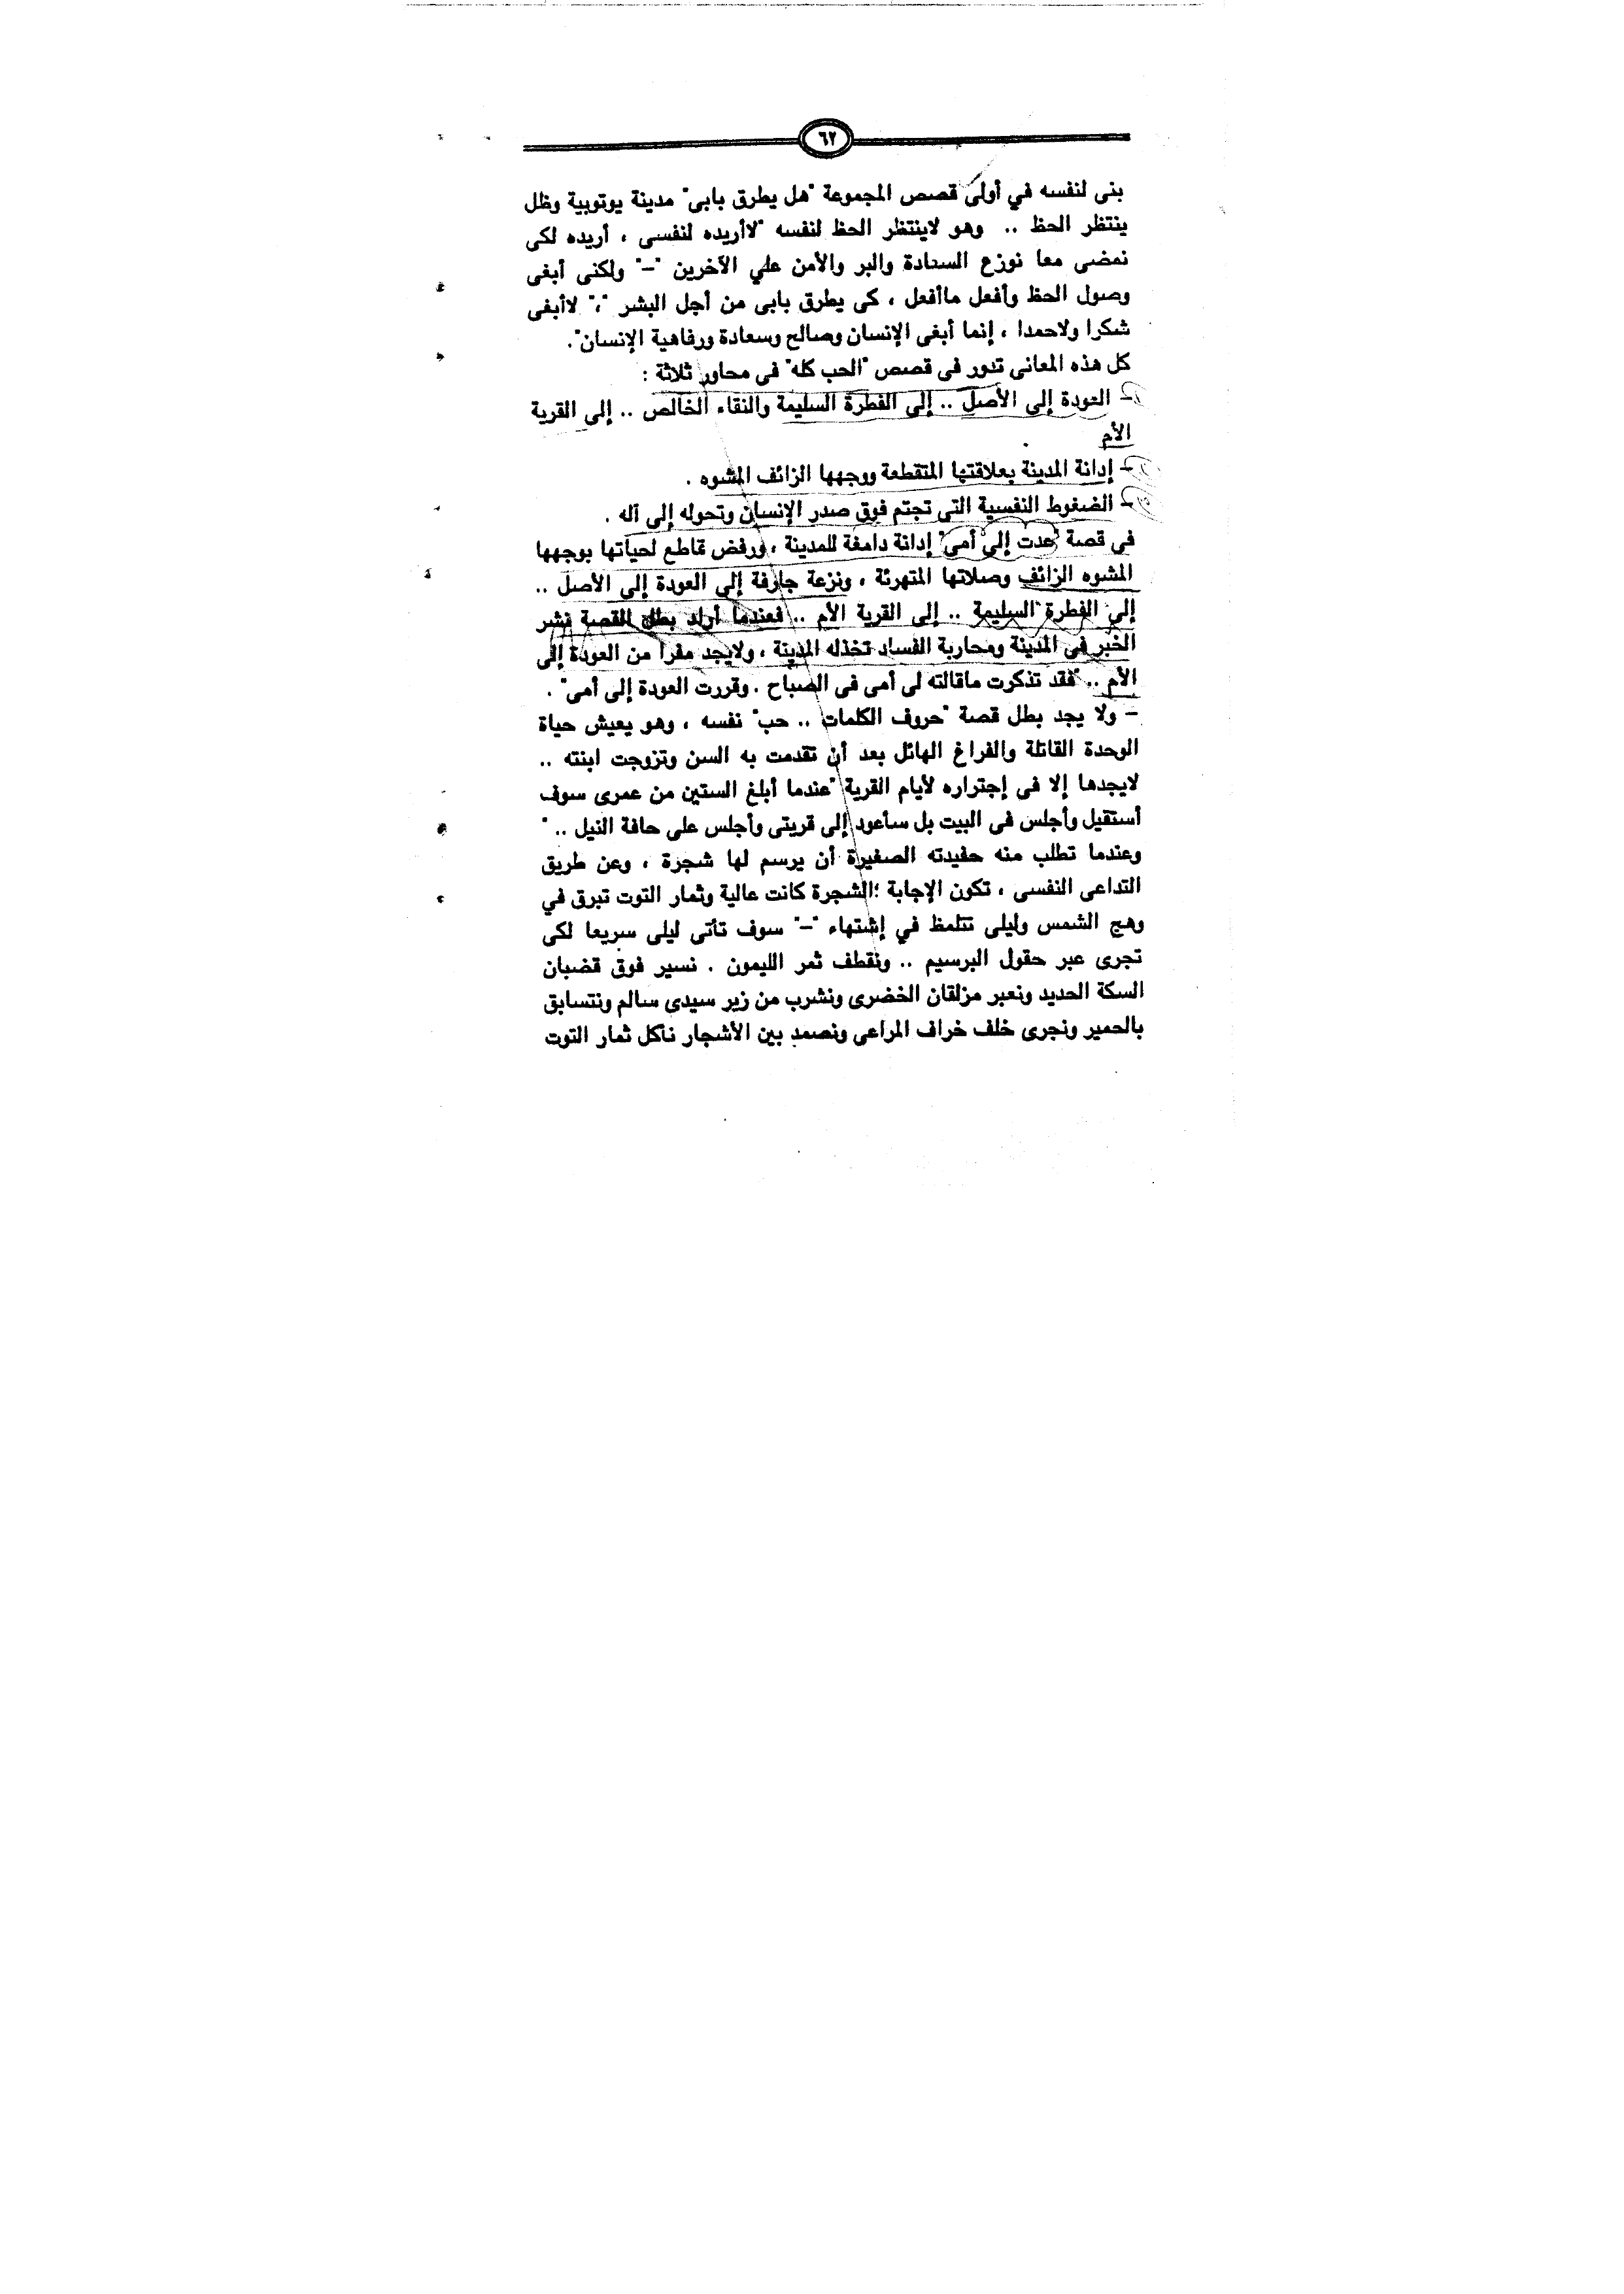 ٦٢
بنى لنفسه في أولى قصص المجموعة "هل يطرق بابى" مدينة يوتوبية وظل
ينتظر الحظ .. وهو لاينتظر الحظ لنفسه "لاأريده لنفسى ، أريده لكى
نمضى معا نوزع السعادة والبر والأمن علي الآخرين "–" ولكنى أبغى
وصول الحظ وأفعل ماأفعل ، كى يطرق بابى من أجل البشر "،" لاأبغى
شكرا ولاحمدا ، إنما أبغى الإنسان وصالح وسعادة ورفاهية الإنسان".
كل هذه المعانى تدور فى قصص "الحب كله" فى محاور ثلاثة :
– العودة إلى الأصل .. إلى الفطرة السليمة والنقاء الخالص .. إلى القرية
الأم
– إدانة المدينة بعلاقتها المتقطعة ووجهها الزائف المشوه .
– الضغوط النفسية التي تجتم فوق صدر الإنسان وتحوله إلى آله .
في قصة "عدت إلى أمى" إدانة دامغة للمدينة ، ورفض قاطع لحياتها بوجهها
المشوه الزائف وصلاتها المتهرئة ، ونزعة جارفة إلى العودة إلى الأصل ..
إلى الفطرة السليمة .. إلى القرية الأم .. فعندما أراد بطل القصة نشر
الخير في المدينة ومحاربة الفساد تخذله المدينة ، ولايجد مفرا من العودة إلى
الأم .. "فقد تذكرت ماقالته لى أمى فى الصباح . وقررت العودة إلى أمى" .
– ولا يجد بطل قصة "حروف الكلمات .. حب" نفسه ، وهو يعيش حياة
الوحدة القاتلة والفراغ الهائل بعد أن تقدمت به السن وتزوجت ابنته ..
لايجدها إلا فى إجتراره لأيام القرية "عندما أبلغ الستين من عمرى سوف
أستقيل وأجلس فى البيت بل سأعود إلى قريتى وأجلس على حافة النيل .. "
وعندما تطلب منه حفيدته الصغيرة أن يرسم لها شجرة ، وعن طريق
التداعى النفسى ، تكون الإجابة :الشجرة كانت عالية وثمار التوت تبرق في
وهج الشمس وليلى تتلمظ في إشتهاء "–" سوف تأتى ليلى سريعا لكى
تجرى عبر حقول البرسيم .. ونقطف ثمر الليمون . نسير فوق قضبان
السكة الحديد ونعبر مزلقان الخضرى ونشرب من زير سيدى سالم ونتسابق
بالحمير ونجرى خلف خراف المراعى ونصعد بين الأشجار نأكل ثمار التوت